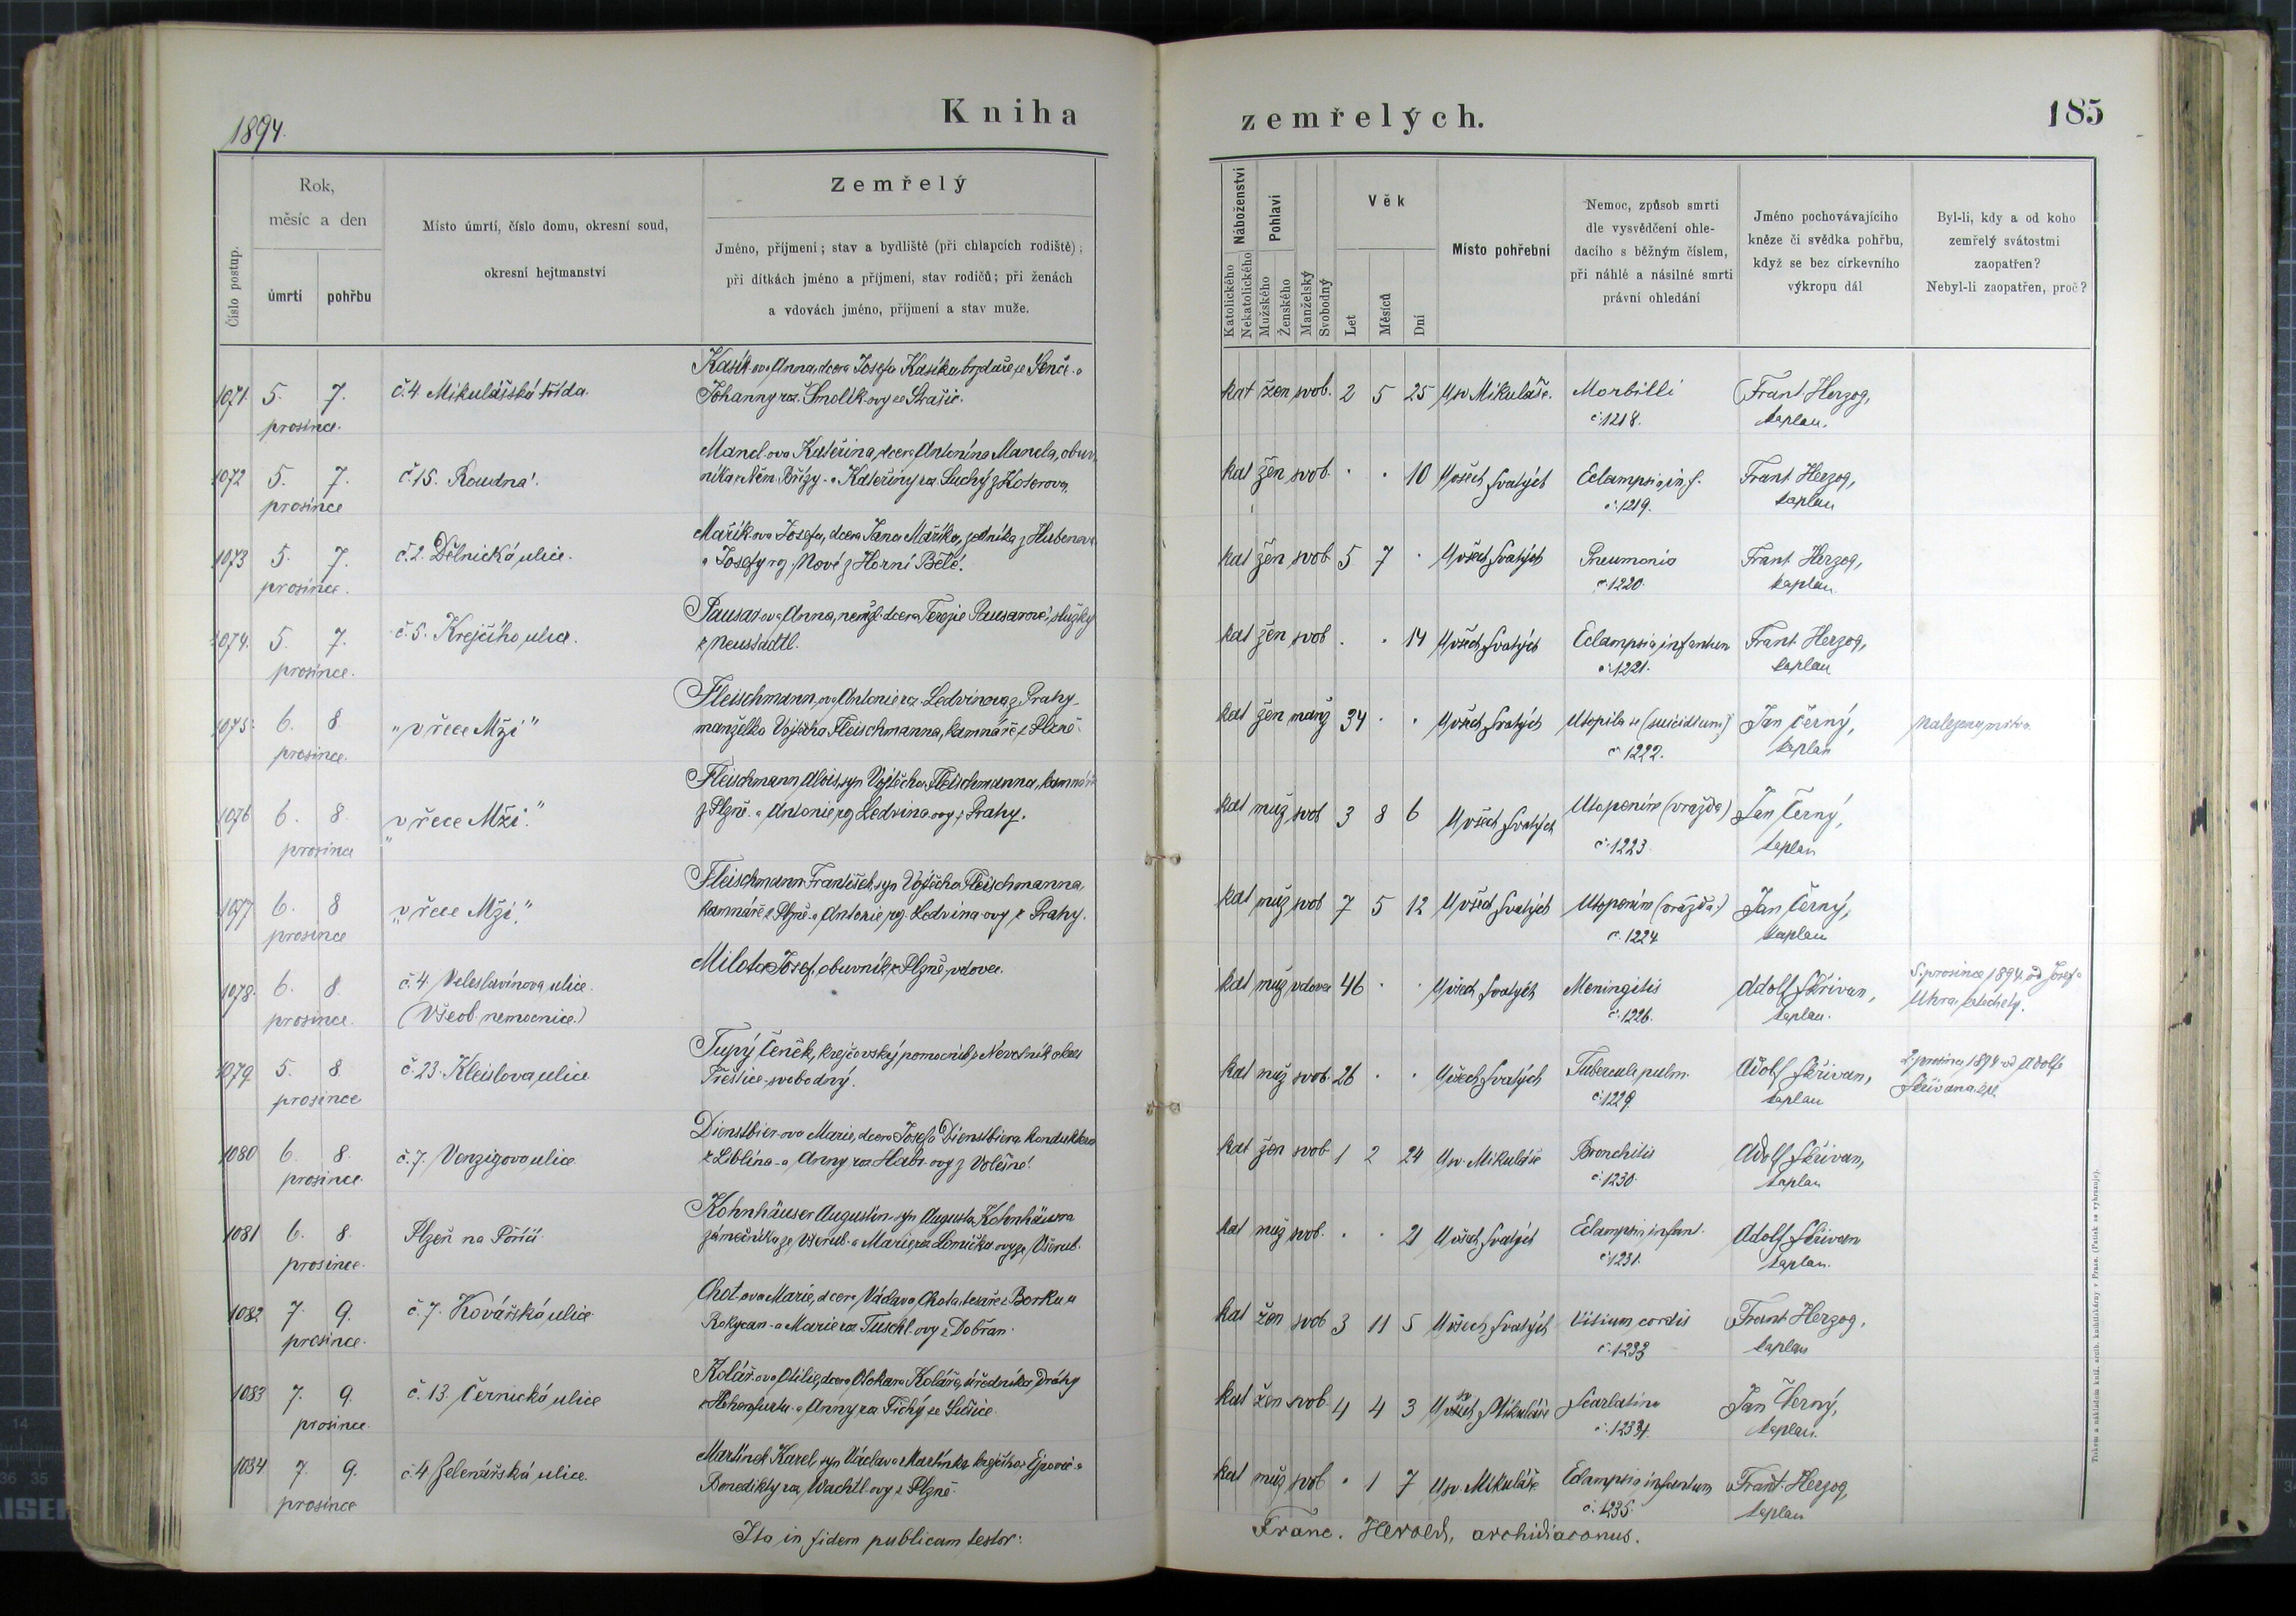 1894.
Kniha
zemřelých.
185
Číslo postup.
Rok,
měsíc a den
úmrtí
pohřbu
Místo úmrtí, číslo domu, okresní soud,
okresní hejtmanství
Zemřelý
Jméno, příjmení; stav a bydliště (při chlapcích rodiště);
při dítkách jméno a příjmení, stav rodičů; při ženách
a vdovách jméno, příjmení a stav muže.
Náboženství
Katolického
Nekatolického
Pohlaví
Mužského
Ženského
Manželský
Svobodný
Věk
Let
Měsíců
Dní
Místo pohřební
Nemoc, způsob smrti
dle vysvědčení ohle-
dacího s běžným číslem,
při náhlé a násilné smrti
právní ohledání
Jméno pochovávajícího
kněze či svědka pohřbu,
když se bez církevního
výkropu dál
Byl-li, kdy a od koho
zemřelý svátostmi
zaopatřen?
Nebyl-li zaopatřen, proč?
1071. 5. 7. prosince. č. 4. Mikulášská třída.
Kasík-ova Anna, dcera Josefa Kasíka, ze Senče a
Johanny roz. Smolík-ovy ze Strašic.
kat žen svob. 2 5 25 U sv Mikuláše. Morbilli č. 1218. Frant. Herzog, kaplan.
1072 5. 7. prosince č. 15. Roudná.
Mandl-ova Kateřina, dcera Antonína Mandla, obuv-
níka z Něm. Břízy a Kateřiny roz. Suchý z Koterova.
kat žen svob. . . 10 U všech svatých Eclampsia inf. č. 1219. Frant. Herzog, kaplan
1073 5. 7. prosince. č. 2. Dělnická ulice.
Mařík-ova Josefa, dcera Jana Maříka, zedníka z Hubenova
a Josefy roz. Nové z Horní Bělé.
kat žen svob 5 7 . U všech svatých Pneumonia č. 1220. Frant. Herzog, kaplan
1074. 5. 7. prosince. č. 5. Krejčího ulice.
Pausar-ova Anna, nemanž. dcera Terezie Pausarové, služky
z Neustadtl.
kat žen svob . . 14 U všech svatých Eclampsia infantum č. 1221. Frant. Herzog, kaplan
1075. 6. 8 prosince. "v řece Mži"
Fleischmann-ova Antonie roz. Ledvinova z Prahy
manželka Vojtěcha Fleischmanna, kamnáře z Plzně.
kat žen manž 34 . . U všech svatých Utopila se (suicidium) č. 1222. Jan Černý, kaplan Nalezena mrtva.
1076 6. 8. prosince "v řece Mži."
Fleischmann Alois, syn Vojtěcha Fleischmanna, kamnáře
z Plzně a Antonie roz. Ledvina-ovy z Prahy.
kat muž svob 3 8 6 U všech svatých Utopením (vražda) č. 1223. Jan Černý, kaplan
1077 6. 8 prosince "v řece Mži."
Fleischmann František, syn Vojtěcha Fleischmanna,
kamnáře z Plzně a Antonie roz. Ledvina-ovy z Prahy.
kat muž svob 7 5 12 U všech svatých Utopením (vražda) č. 1224 Jan Černý, kaplan
1078. 6. 8. prosince. č. 4. Veleslavínova ulice. (Všeob. nemocnice.)
Milota Josef, obuvník z Plzně, vdovec.
kat muž vdovec 46 . . U všech svatých Meningitis č. 1226. Adolf Skřivan, kaplan. 5. prosince 1894 od Josefa Uhra, katechety.
1079 5. 8. prosince č. 23. Kleislova ulice
Tupý Čeněk, krejčovský pomocník z
Přeštice - svobodný.
kat muž svob. 26 . . U všech svatých Tubercul. pulm. č. 1229. Adolf Skřivan, kaplan 2. prosince 1894 od Adolfa Skřivana, kpl.
1080 6. 8. prosince. č. 7. Venzigova ulice
Dienstbier-ova Marie, dcera Josefa Dienstbiera, konduktora
z Liblína a Anny roz. Habr-ovy z Volešné.
kat žen svob. 1 2 24 U sv. Mikuláše Bronchitis č. 1230. Adolf Skřivan, kaplan
1081 6. 8. prosince. Plzeň na Poříčí.
Kohnhäuser Augustin, syn Augusta Kohnhäusra
zámečníka ze Všerub a Marie roz. Lomička-ovy ze Všerub.
kat muž svob. . . 21 U všech svatých Eclampsia infant. č. 1231. Adolf Skřivan kaplan.
1082 7. 9. prosince. č. 7. Kovářská ulice
Chot-ova Marie, dcera Václava Chota, tesaře z Borku u
Rokycan a Marie roz. Tuschl-ovy z Dobřan.
kat žen svob 3 11 5 U všech svatých Vitium cordis č. 1233 Frant. Herzog, kaplan
1083 7. 9. prosince č. 13. Černická ulice
Kolář-ova Otilie, dcera Otokara Koláře, úředníka Dráhy
z Hohenfurtu a Anny roz. Tichý ze Sušice.
kat žen svob. 4 4 3 U sv Mikuláše Scarlatina č. 1234. Jan Černý, kaplan.
1084 7. 9. prosince č. 4 Zelenářská ulice.
Martínek Karel, syn Václava Martínka krejčího z Ejpovic a
Benedikty roz. Wachtl-ovy z Plzně.
kat muž svob . 1 7 U sv. Mikuláše Eclampsia infantum č. 1235. Frant. Herzog, kaplan
Ita in fidem publicam testor:
Franc. Herold, archidiaconus.